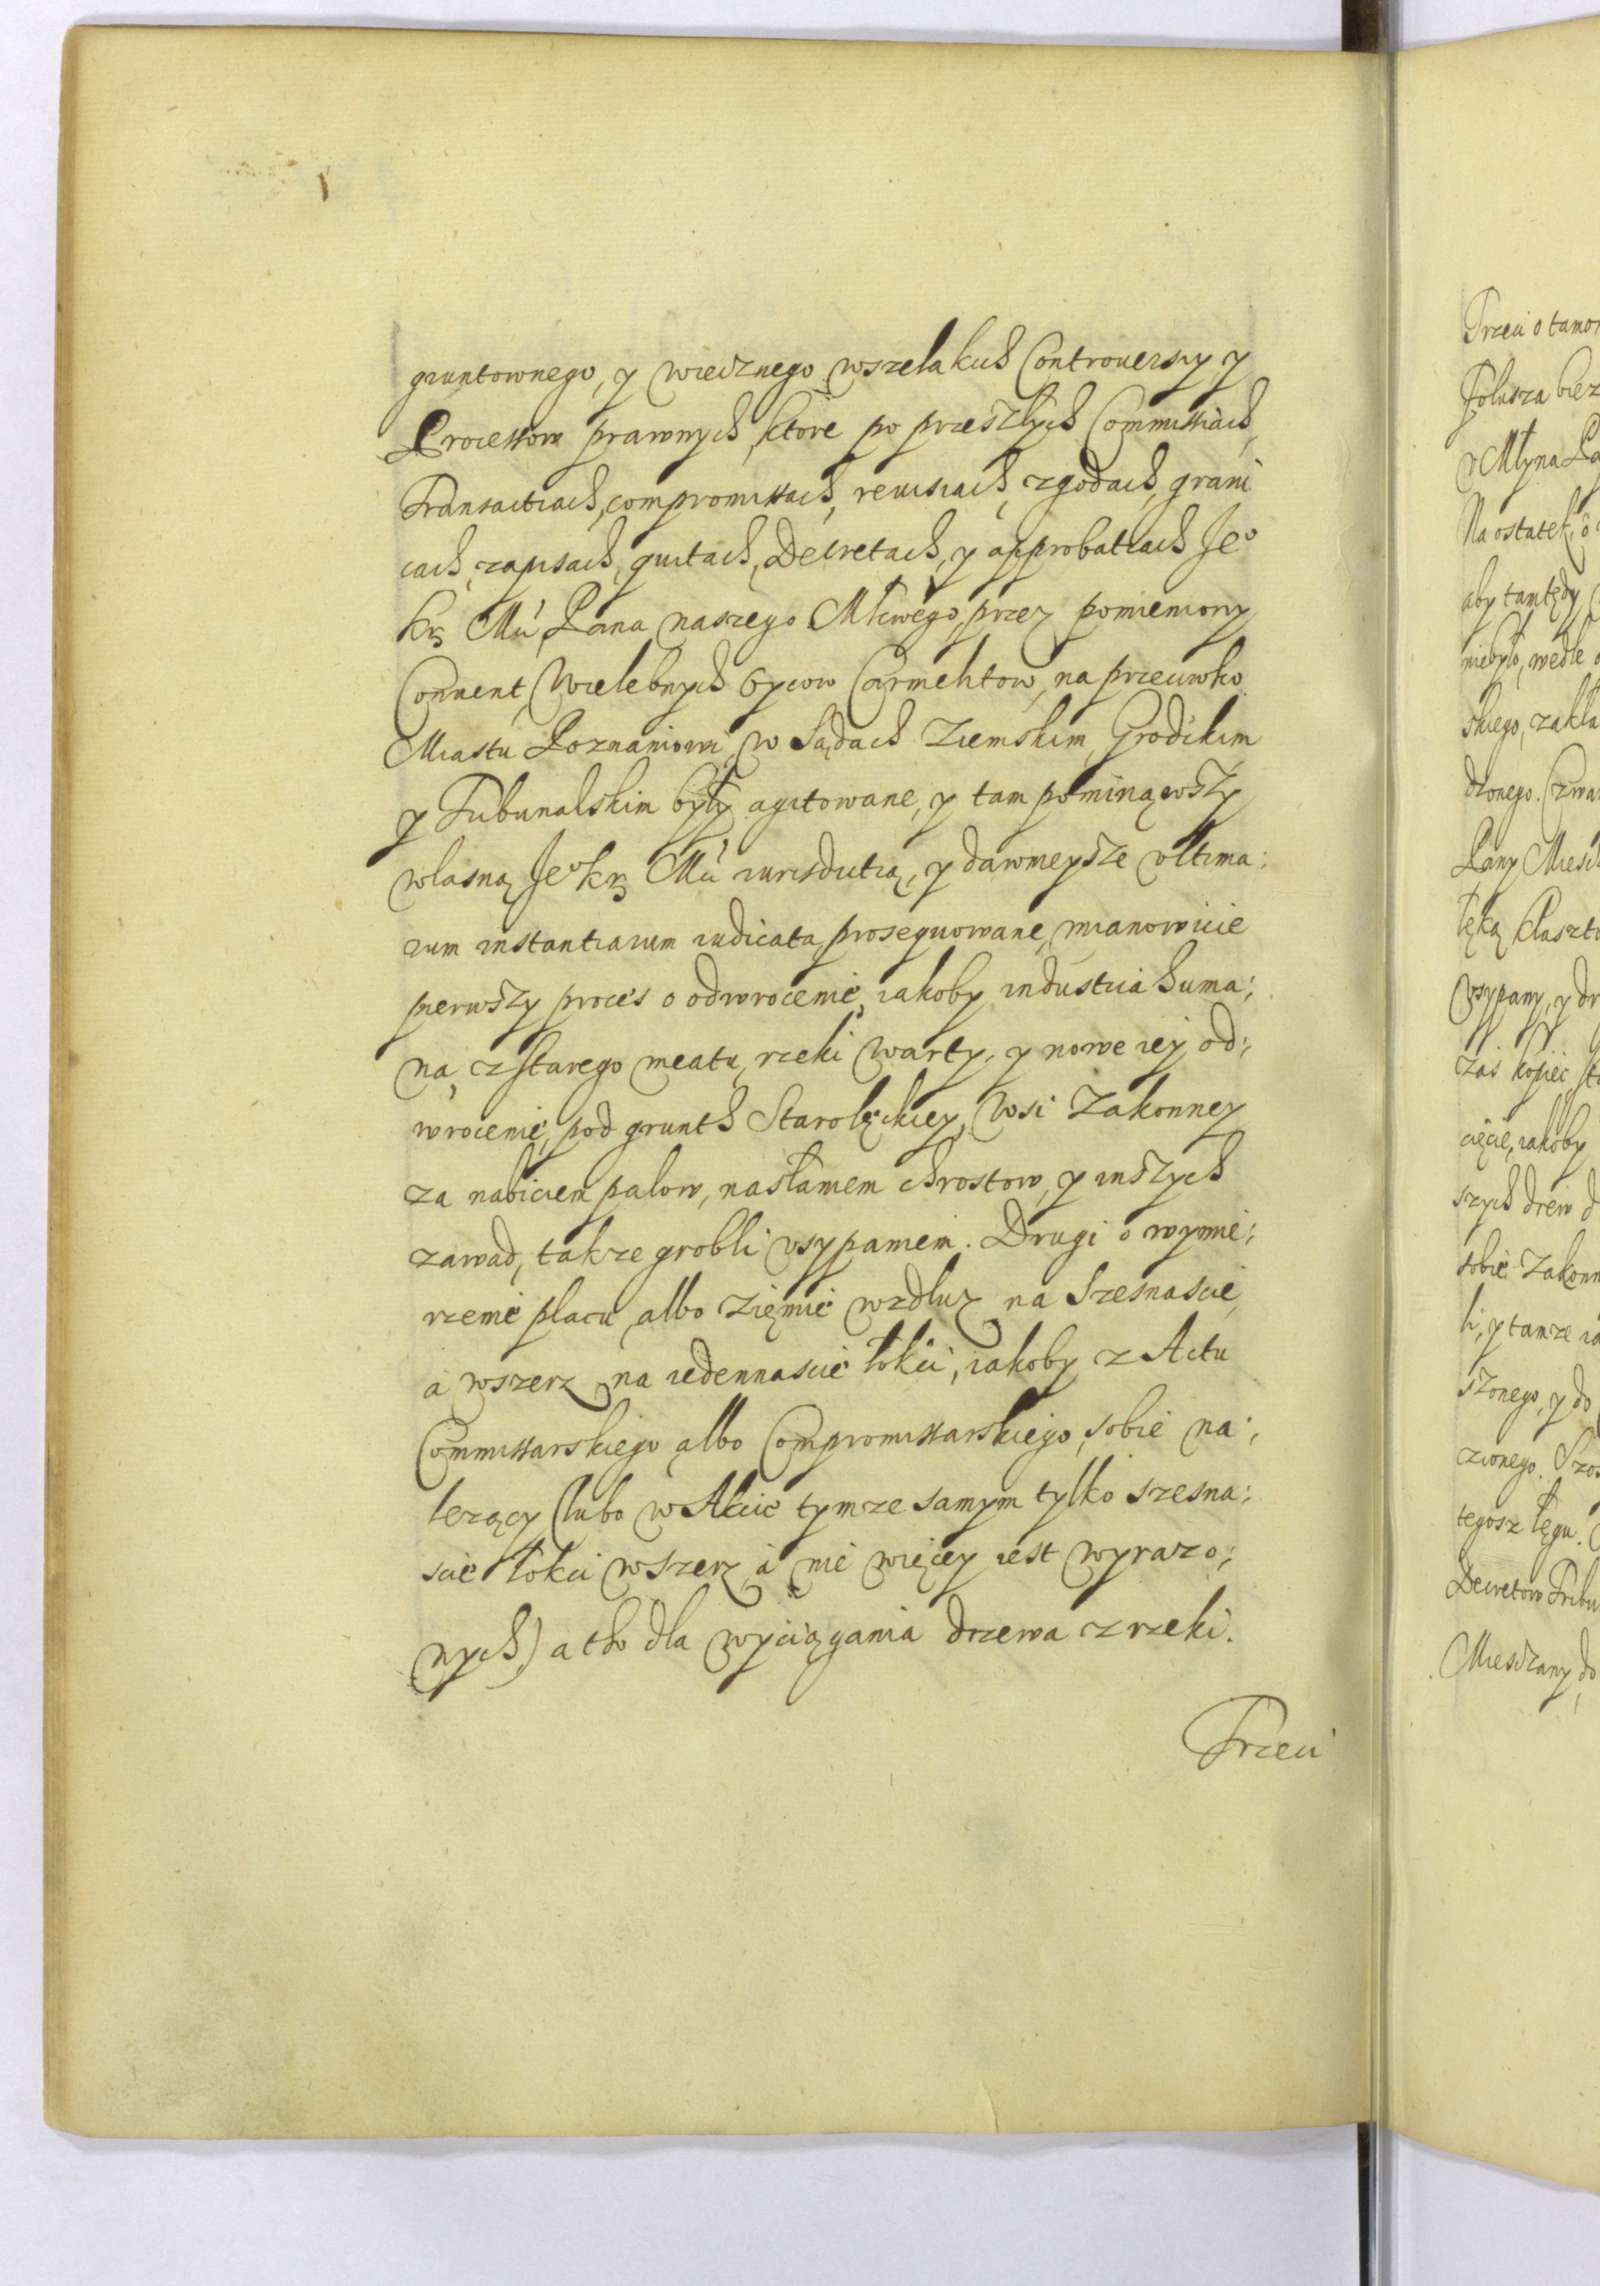 gruntownego, y wiecznego wszelakich Controuersiy y
Processow prawnych, ktore po przeszłych Commissiach,
Transactiach, compromissach, reuisiach, zgodach, grani
cach, zapisach, quitach, Decretach, y approbatiach Jeº
Kr Mci Pana naszego Młciwego, przez pomieniony
Conuent Wielebnych Oycow Carmelitow, na przeciwko
Miastu Poznaniowi, w Sądach Ziemskim, Grodskim
y Tribunalskim były agitowane, y tam pominąwszy
własną Jeº Kr Mci iurisdictią, y dawnieysze vltima:
rum instantiarum iudicata, prosequowane, mianowicie
pierwszy proces o odwrocenie, iakoby industria huma:
na, z starego meatu, rzeki Warty, y nowe iey od:
wrocenie, pod grunth Starolęckiey, Wsi Zakonney
za nabiciem palow, nasłaniem chrostow, y inszych
zawad, takze grobli vsypaniem. Drugi o wymie:
rzenie placu, albo Zięmie wzdłuz na Szesnascie,
a wszerz na iedennascie łokci, iakoby z Actu
Commissarskiego albo Compromissarskiego, sobie na:
lezący (lubo w Akcie tymze samym tylko szesna:
scie łokci wszerz, a nie więcey iest wyrazo:
nych) a tho dla wyciągania drzewa z rzeki.
Trzeci
Trzeci o tamo
Folusza bie
v Młyna
Na ostatek, o
aby tamtędy
niebyło, wedle
skiego, zakła
dzonego.
Pany
łęką Klaszto
Vsypany, y
zaś kopiec
cięcie, iakoby
szych drew
sobie Zakonn
li, y tamze
szonego, y do
czionego.
tegosz łęgu.
Decretow Tribu
Miesczany, do